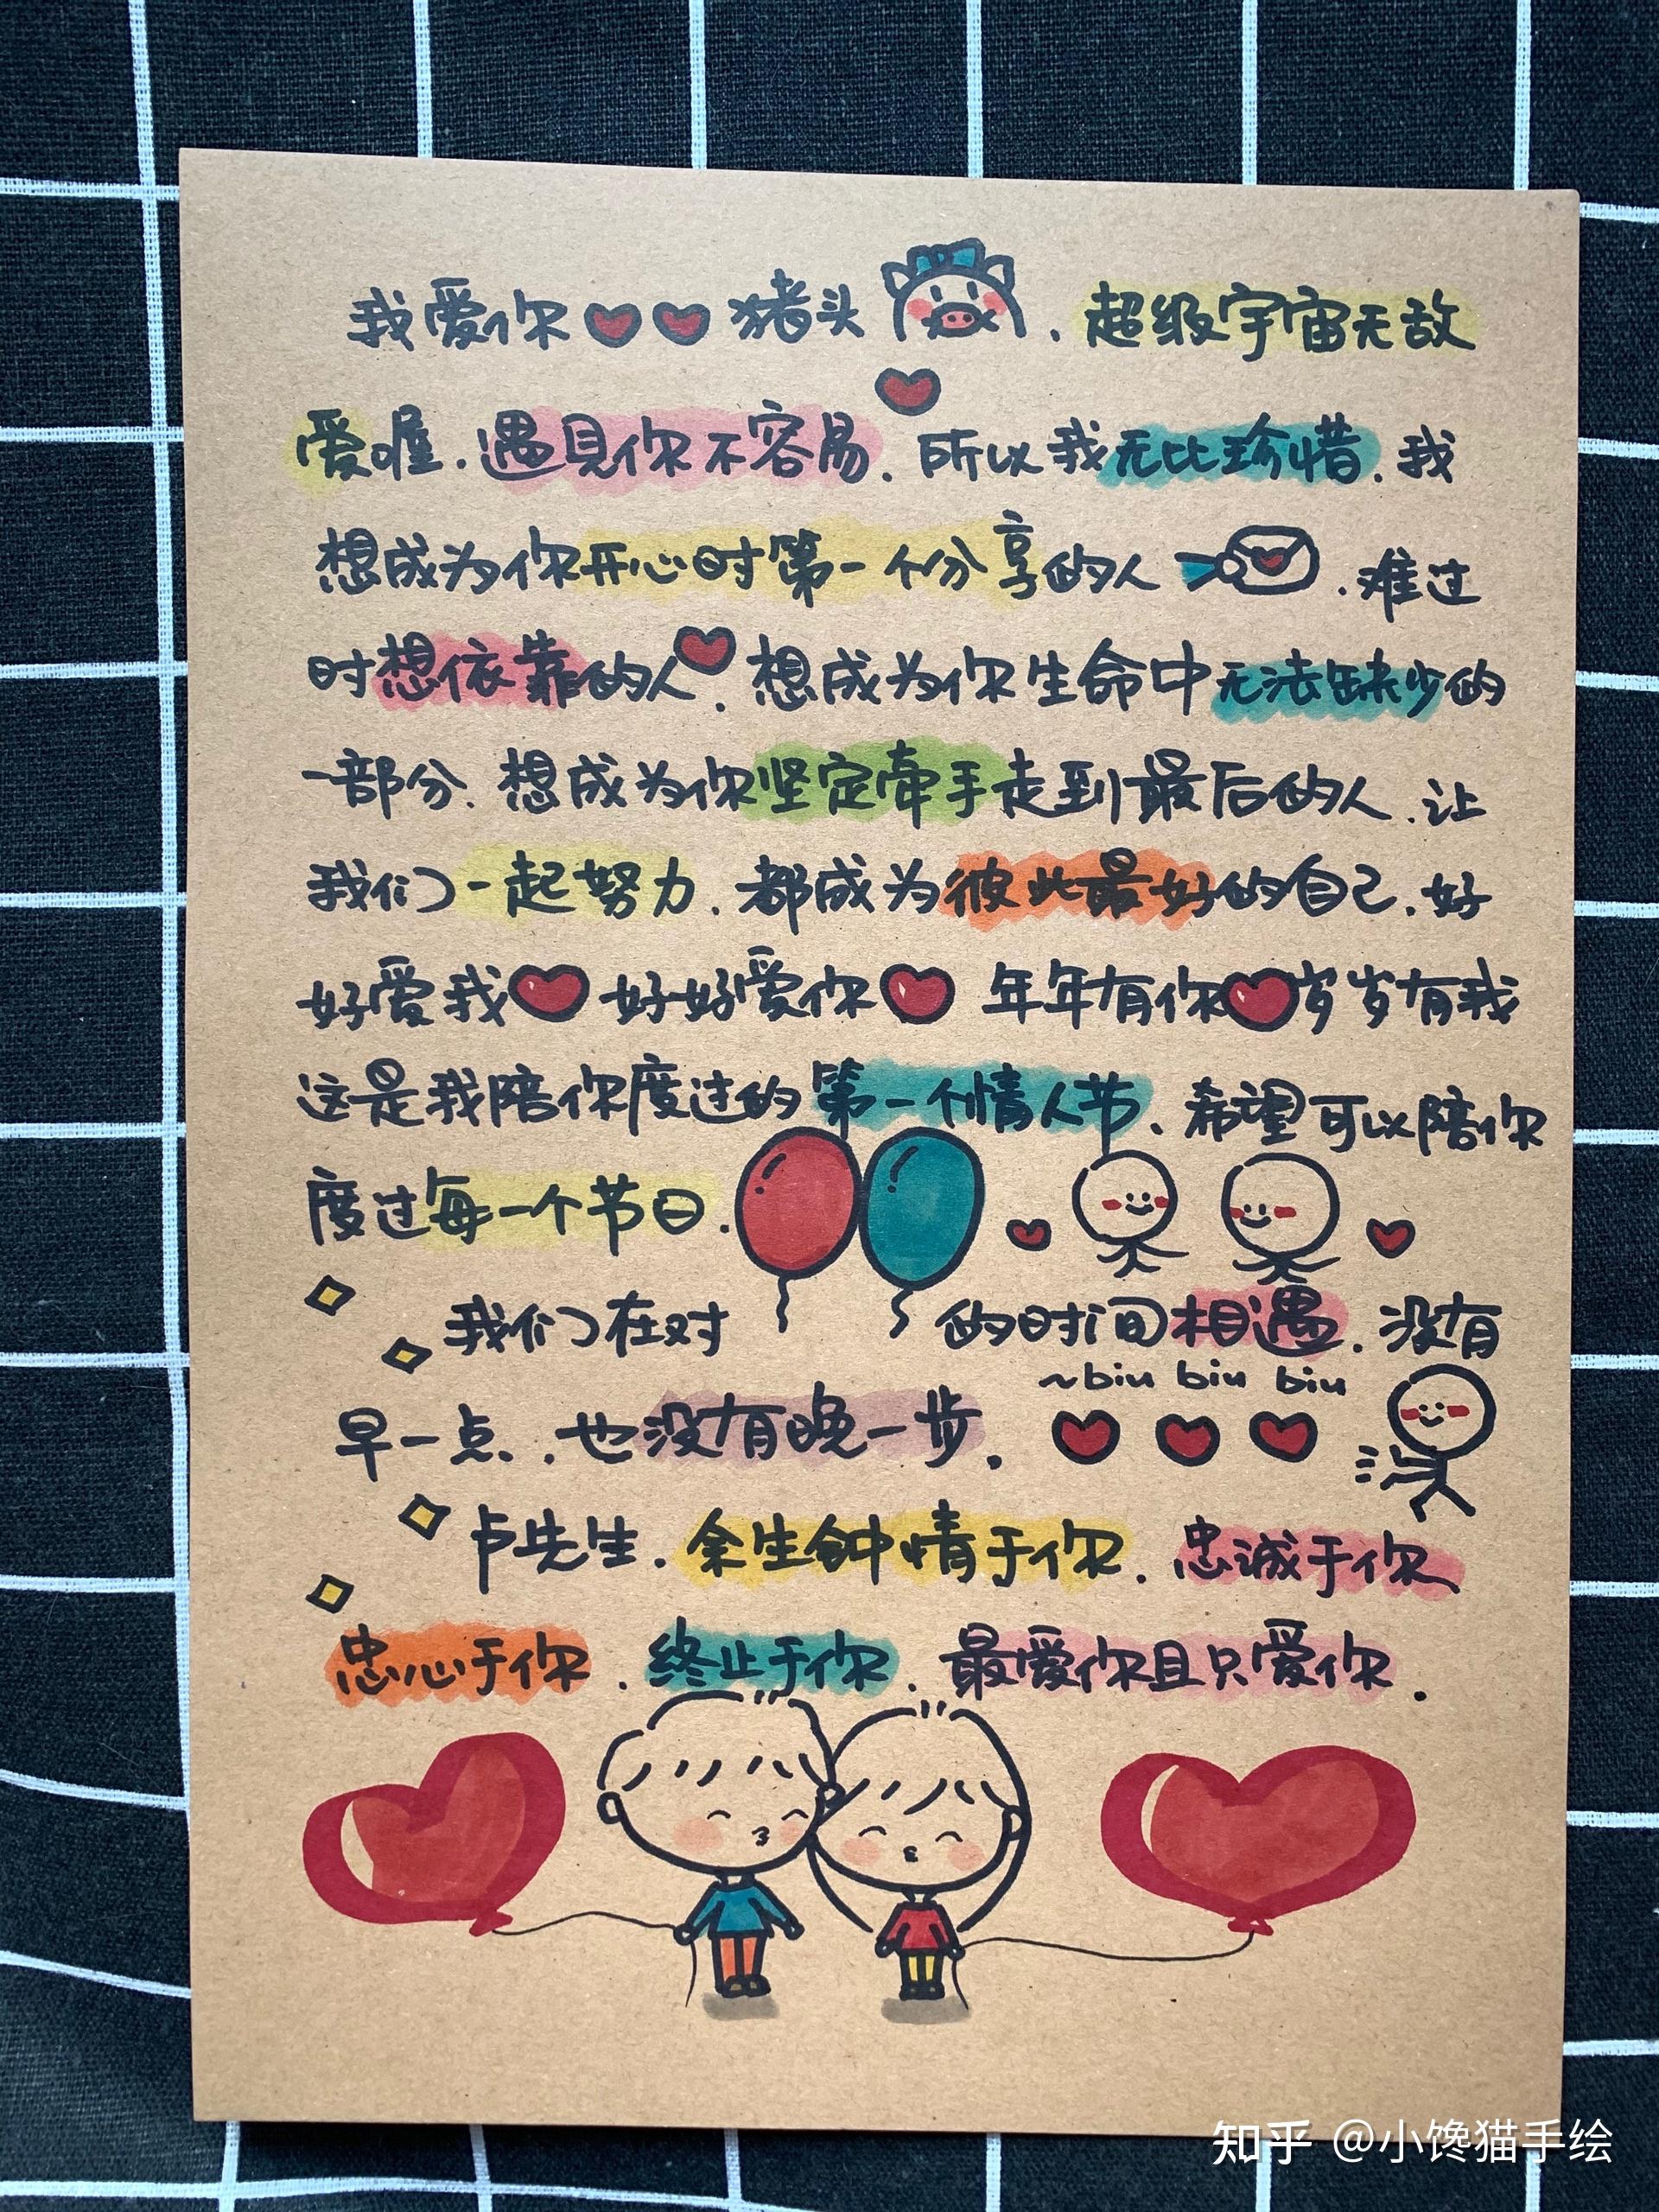 我爱你猪头.超级宇宙无敌
爱喔.遇见你不容易.所以我无比珍惜.我
想成为你开心时第一个分享的人.难过
时想依靠的人.想成为你生命中无法缺少的
一部分.想成为你坚定牵手走到最后的人.让
我们一起努力.都成为彼此最好的自己.好
好爱我好好爱你 年年有你岁岁有我
这是我陪你度过的第一个情人节、希望可以陪你
度过每一个节日.
我们在对的时间相遇.没有
~biu biu biu
早一点.也没有晚一步.
卢先生.余生钟情于你.忠诚于你
忠心于你.终止于你.最爱你且只爱你.
知乎 @小馋猫手绘